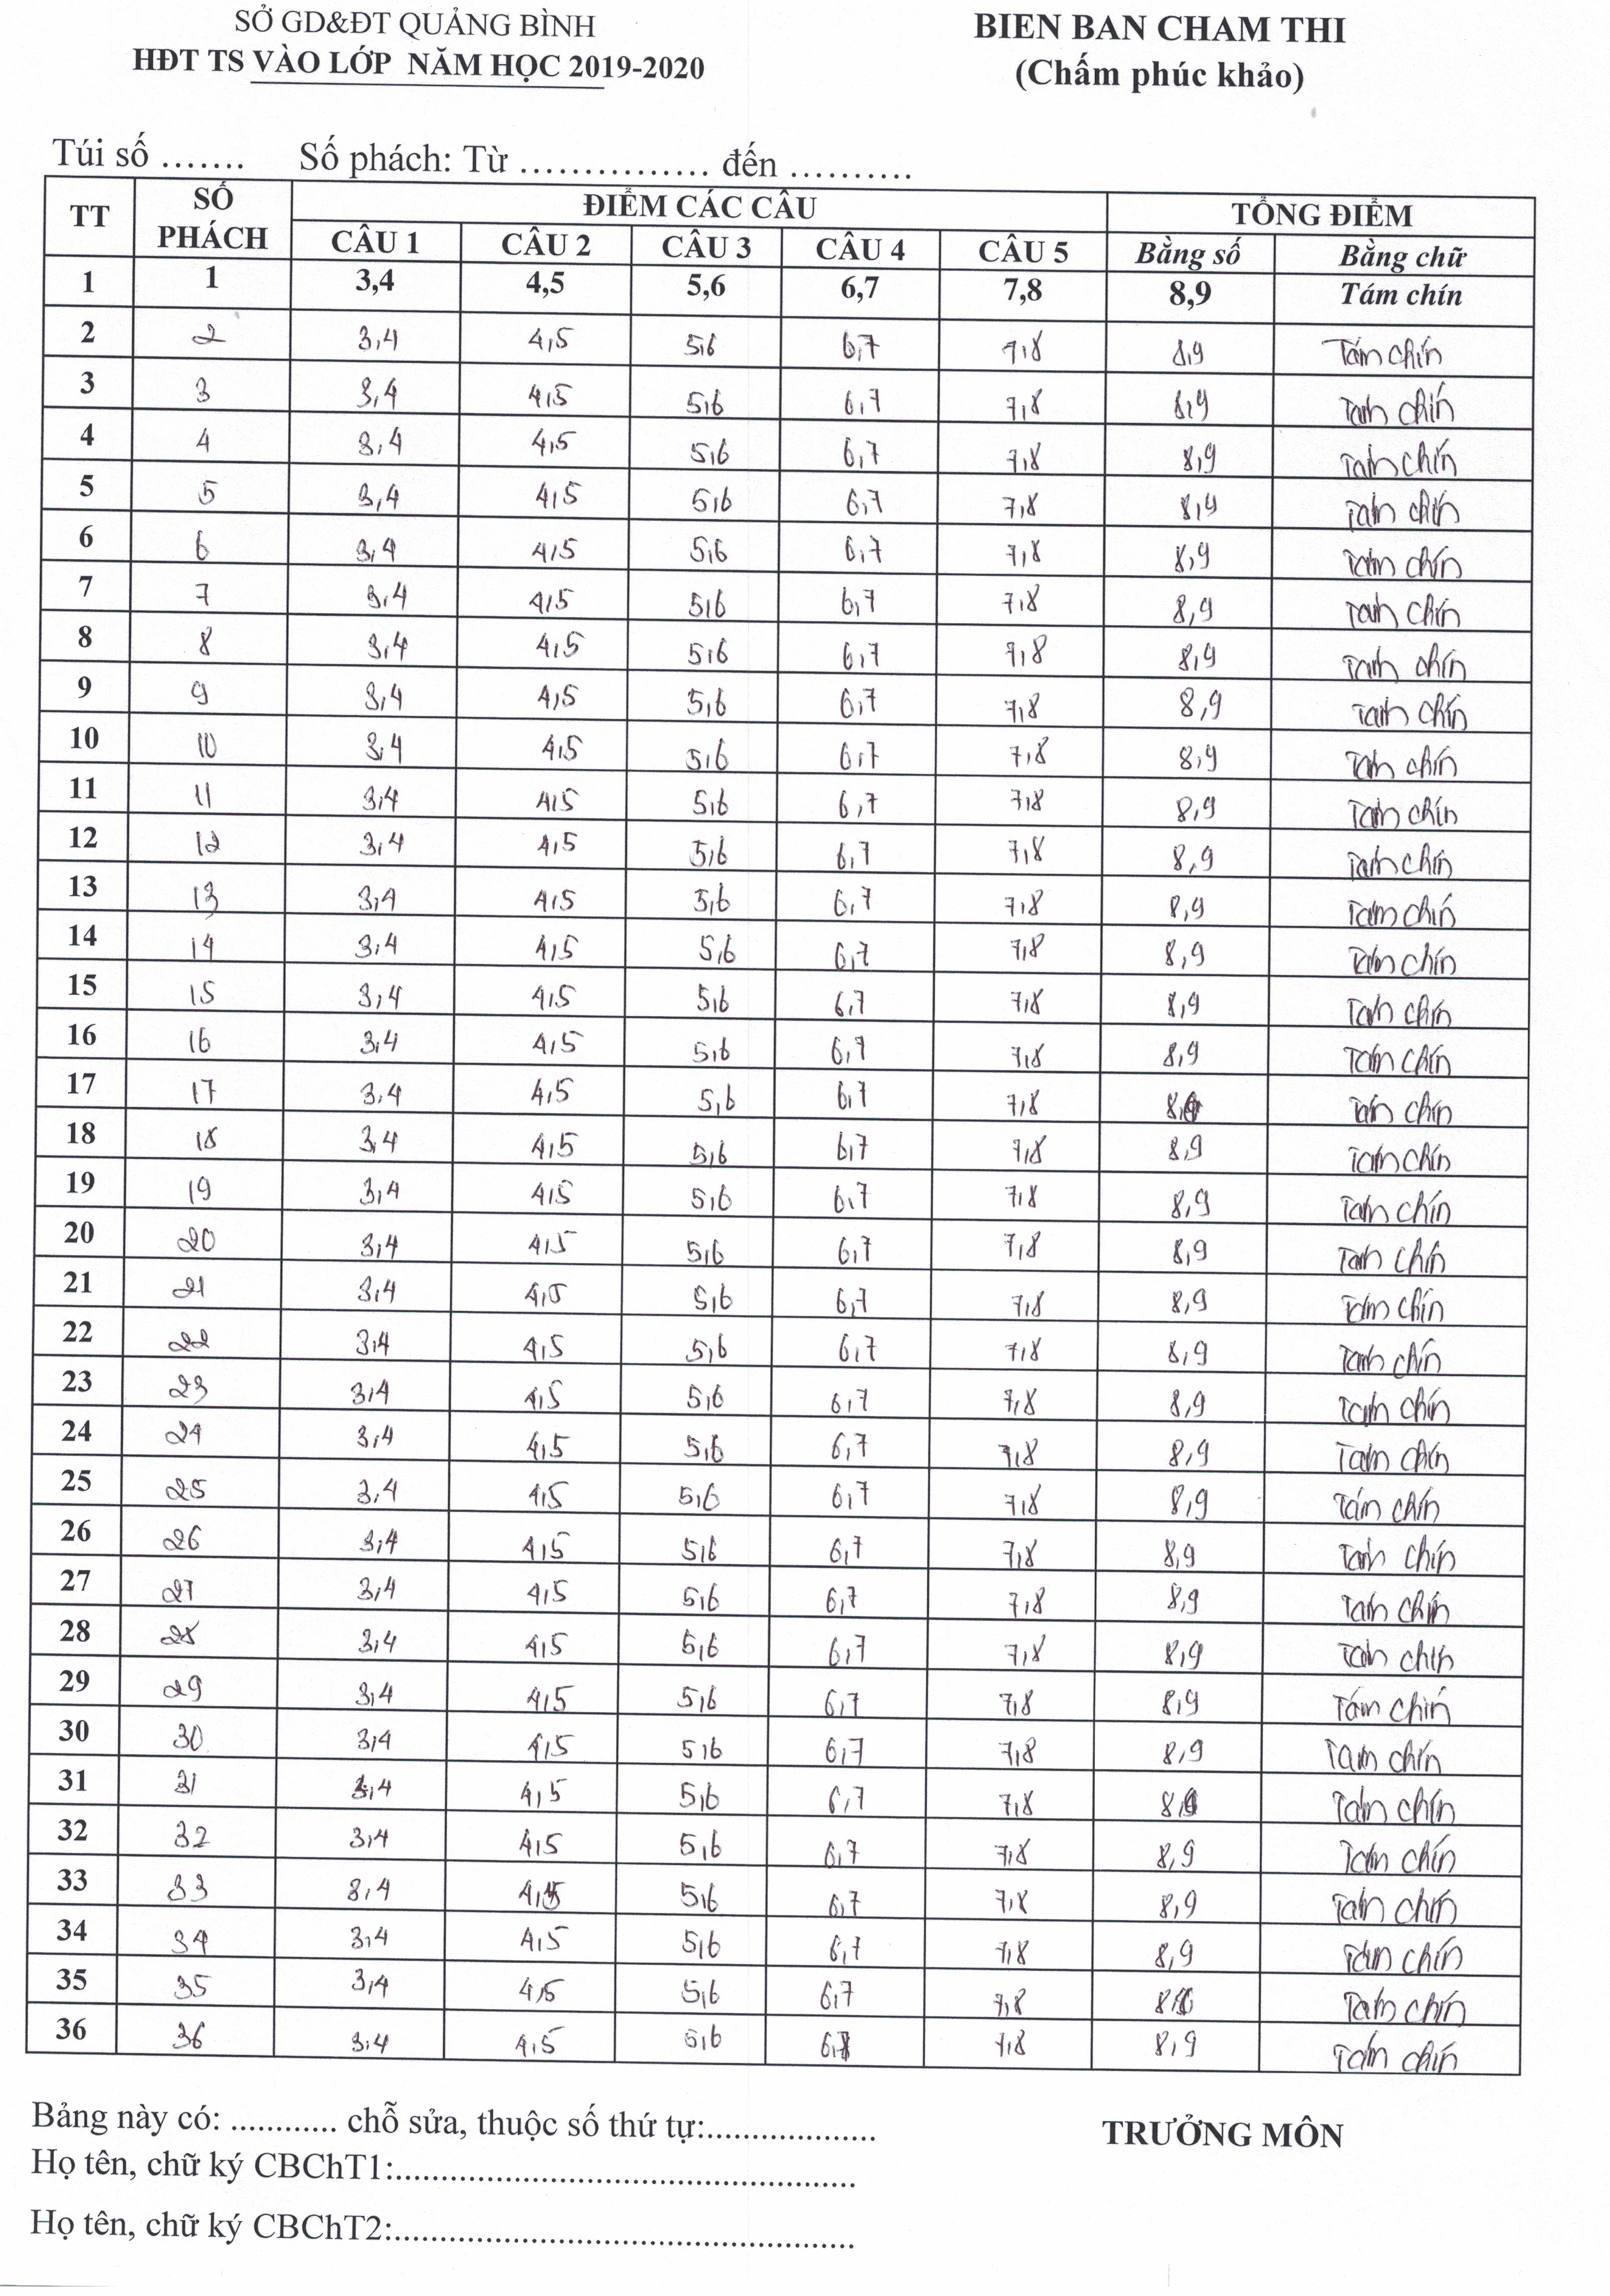 SỞ GD&ĐT QUẢNG BÌNH
HĐT TS VÀO LỚP NĂM HỌC 2019-2020
BIEN BAN CHAM THI
(Chấm phúc khảo)
Túi số ....... Số phách: Từ ............... đến ..........
TT SỐ PHÁCH ĐIỂM CÁC CÂU TỔNG ĐIỂM
CÂU 1 CÂU 2 CÂU 3 CÂU 4 CÂU 5 Bằng số Bằng chữ
1 1 3,4 4,5 5,6 6,7 7,8 8,9 Tám chín
2 2 3,4 4,5 5,6 6,7 7,8 8,9 Tám chín
3 3 3,4 4,5 5,6 6,7 7,8 8,9 Tám chín
4 4 3,4 4,5 5,6 6,7 7,8 8,9 Tám chín
5 5 3,4 4,5 5,6 6,7 7,8 8,9 Tám chín
6 6 3,4 4,5 5,6 6,7 7,8 8,9 Tám chín
7 7 3,4 4,5 5,6 6,7 7,8 8,9 Tám chín
8 8 3,4 4,5 5,6 6,7 7,8 8,9 Tám chín
9 9 3,4 4,5 5,6 6,7 7,8 8,9 Tám chín
10 10 3,4 4,5 5,6 6,7 7,8 8,9 Tám chín
11 11 3,4 4,5 5,6 6,7 7,8 8,9 Tám chín
12 12 3,4 4,5 5,6 6,7 7,8 8,9 Tám chín
13 13 3,4 4,5 5,6 6,7 7,8 8,9 Tám chín
14 14 3,4 4,5 5,6 6,7 7,8 8,9 Tám chín
15 15 3,4 4,5 5,6 6,7 7,8 8,9 Tám chín
16 16 3,4 4,5 5,6 6,7 7,8 8,9 Tám chín
17 17 3,4 4,5 5,6 6,7 7,8 Tám chín
18 18 3,4 4,5 5,6 6,7 7,8 8,9 Tám chín
19 19 3,4 4,5 5,6 6,7 7,8 8,9 Tám chín
20 20 3,4 4,5 5,6 6,7 7,8 8,9 Tám chín
21 21 3,4 4,5 5,6 6,7 7,8 8,9 Tám chín
22 22 3,4 4,5 5,6 6,7 7,8 8,9 Tám chín
23 23 3,4 4,5 5,6 6,7 7,8 8,9 Tám chín
24 24 3,4 4,5 5,6 6,7 7,8 8,9 Tám chín
25 25 3,4 4,5 5,6 6,7 7,8 8,9 Tám chín
26 26 3,4 4,5 5,6 6,7 7,8 8,9 Tám chín
27 27 3,4 4,5 5,6 6,7 7,8 8,9 Tám chín
28 28 3,4 4,5 5,6 6,7 7,8 8,9 Tám chín
29 29 3,4 4,5 5,6 6,7 7,8 8,9 Tám chín
30 30 3,4 4,5 5,6 6,7 7,8 8,9 Tám chín
31 31 3,4 4,5 5,6 6,7 7,8 Tám chín
32 32 3,4 4,5 5,6 6,7 7,8 8,9 Tám chín
33 33 3,4 4,5 5,6 6,7 7,8 8,9 Tám chín
34 34 3,4 4,5 5,6 6,7 7,8 8,9 Tám chín
35 35 3,4 4,5 5,6 6,7 7,8 Tám chín
36 36 3,4 4,5 5,6 7,8 8,9 Tám chín
Bảng này có: ............ chỗ sửa, thuộc số thứ tự:...................
TRƯỞNG MÔN
Họ tên, chữ ký CBChT1:....................................................
Họ tên, chữ ký CBChT2:....................................................